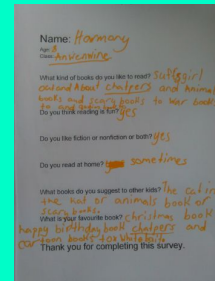 Name: Harmony
Age: 8
Class:
What kind of books do you like to read? Suffsgirl
out and About chalpers and Animals
books and scary books to war book
Do you think reading is fun? yes
Do you like fiction or nonfiction or both? yes
Do you read at home? sometimes
What books do you suggest to other kids? The cat in
the hat or animals book or
scary books.
What is your favourite book? christmas book
happy birthday book chalpers and
cartoon books
Thank you for completing this survey.